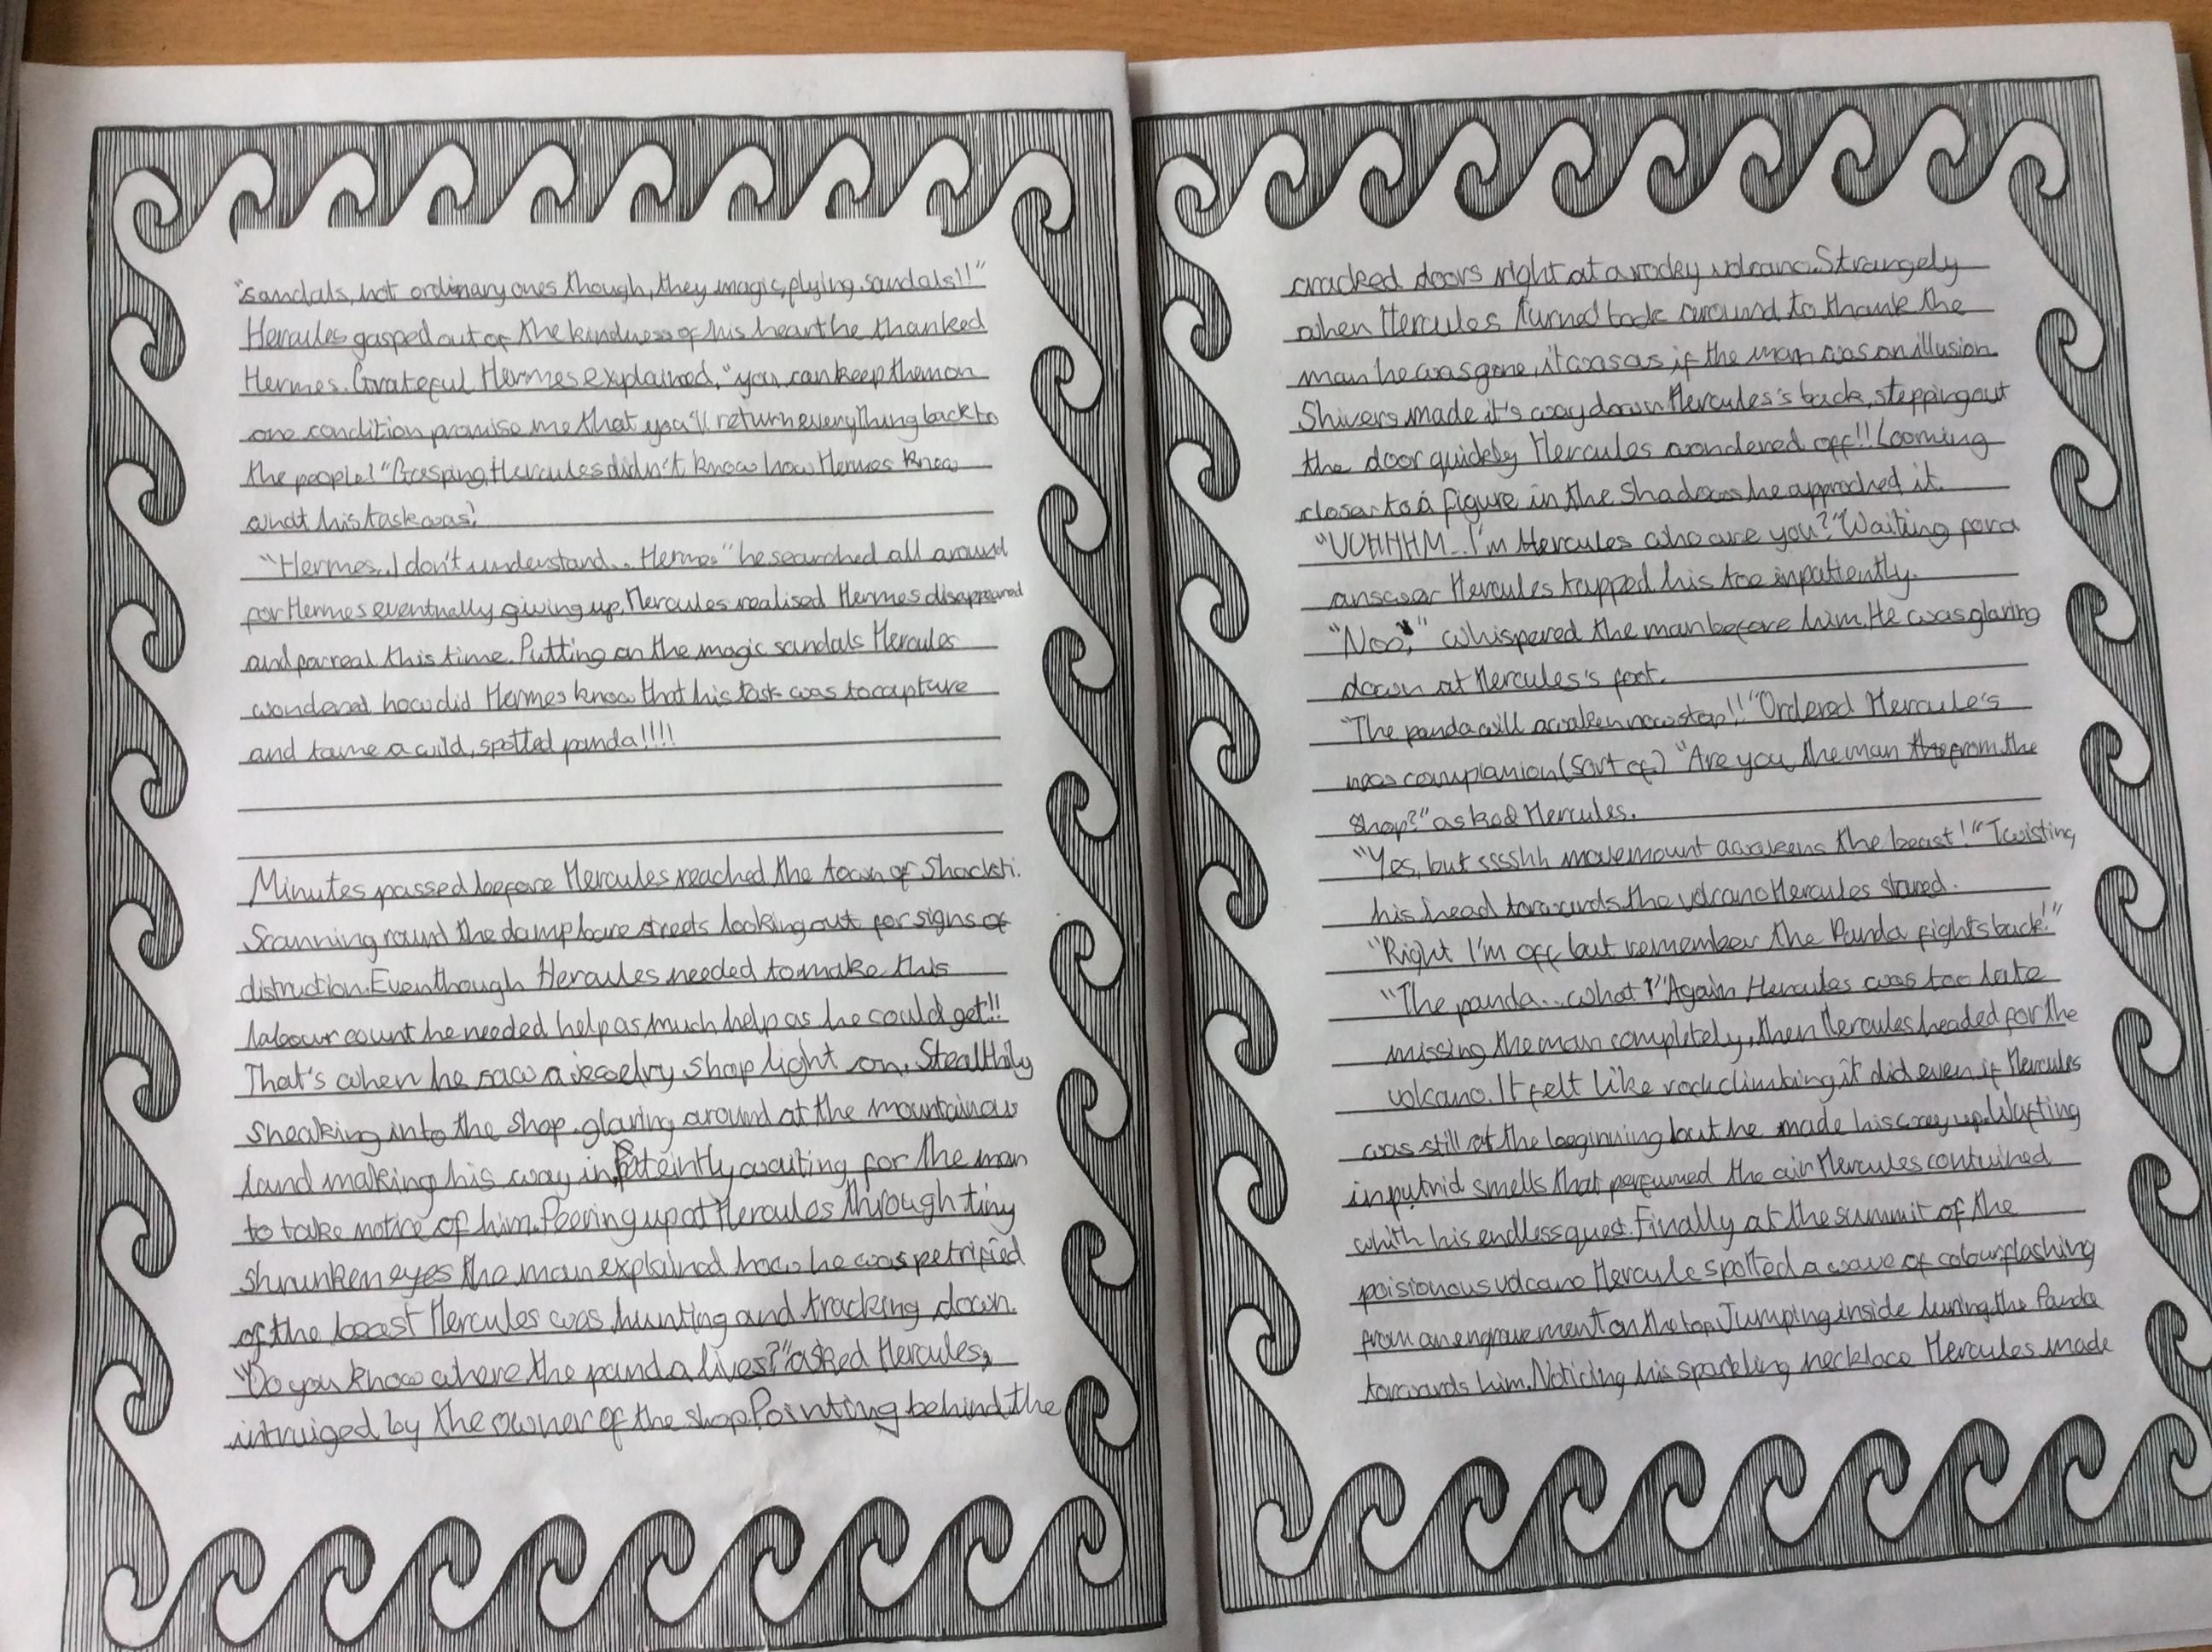 "sandals, not ordinary ones though, they magic, flying, sandals!!"
Hercules gasped out of the kindness of his heart he thanked
Hermes. Grateful Hermes explained, "you can keep them on
one condition promise me that you'll return everything back to
the people!" Gasping, Hercules didn't know how Hermes knew
what his task was?
"Hermes, I don't understand... Hermes" he searched all around
for Hermes eventually giving up, Hercules realised Hermes disappeared
and for real this time. Putting on the magic sandals Hercules
wondered how did Hermes know that his task was to capture
and tame a wild, spotted panda!!!!
Minutes passed before Hercules reached the town of Shacksti.
Scanning round the damp bare streets looking out for signs of
distruction. Eventhough Hercules needed to make this
labour count he needed help as, much help as he could get!!
That's when he saw a jewelry shop light on. Stealthily
sneaking into the shop, glaring around at the mountainous
land making his way in, pateintly waiting for the man
to take notice of him. Peering up at Hercules through tiny
shrunken eyes the man explained how he was petrified
of the beast Hercules was hunting and tracking down.
"Do you know where the panda lives?" asked Hercules,
intruiged by the owner of the shop. Pointing behind the
cracked doors right at a rocky volcano. Strangely
when Hercules turned back around to thank the
man he was gone, it was as if the man was an illusion.
Shivers made it's way down Hercules's back, stepping out
the door quickly Hercules wondered off!! Looming
closer to a figure in the shadows he approched it.
"UUHHHM... I'm Hercules who are you?" Waiting for a
answear Hercules tapped his toe inpatiently.
"Noo," whispered the man before him. He was glaring
down at Hercules's foot.
"The panda will awaken now stop!!" Ordered Hercule's
new companion (sort of.) "Are you, the man the from the
shop?" asked Hercules.
"Yes, but sssshh movemount awakens the beast!" Twisting
his head torwards the volcano Hercules stared.
"Right I'm off but remember the Panda fights back!"
"The panda... what?" Again Hercules was too late
missing the man completely, then Hercules headed for the
volcano. It felt like rock climbing it did even if Hercules
was still at the beginning but he made his way up. Wafting
in putrid smells that perfumed the air Hercules contuined
whith his endless quest. Finally at the summit of the
poisionous volcano Hercule spotted a wave of colour flashing
from an engravement on the top. Jumping inside luring the Panda
torwards him. Noticing his sparkling necklace Hercules made